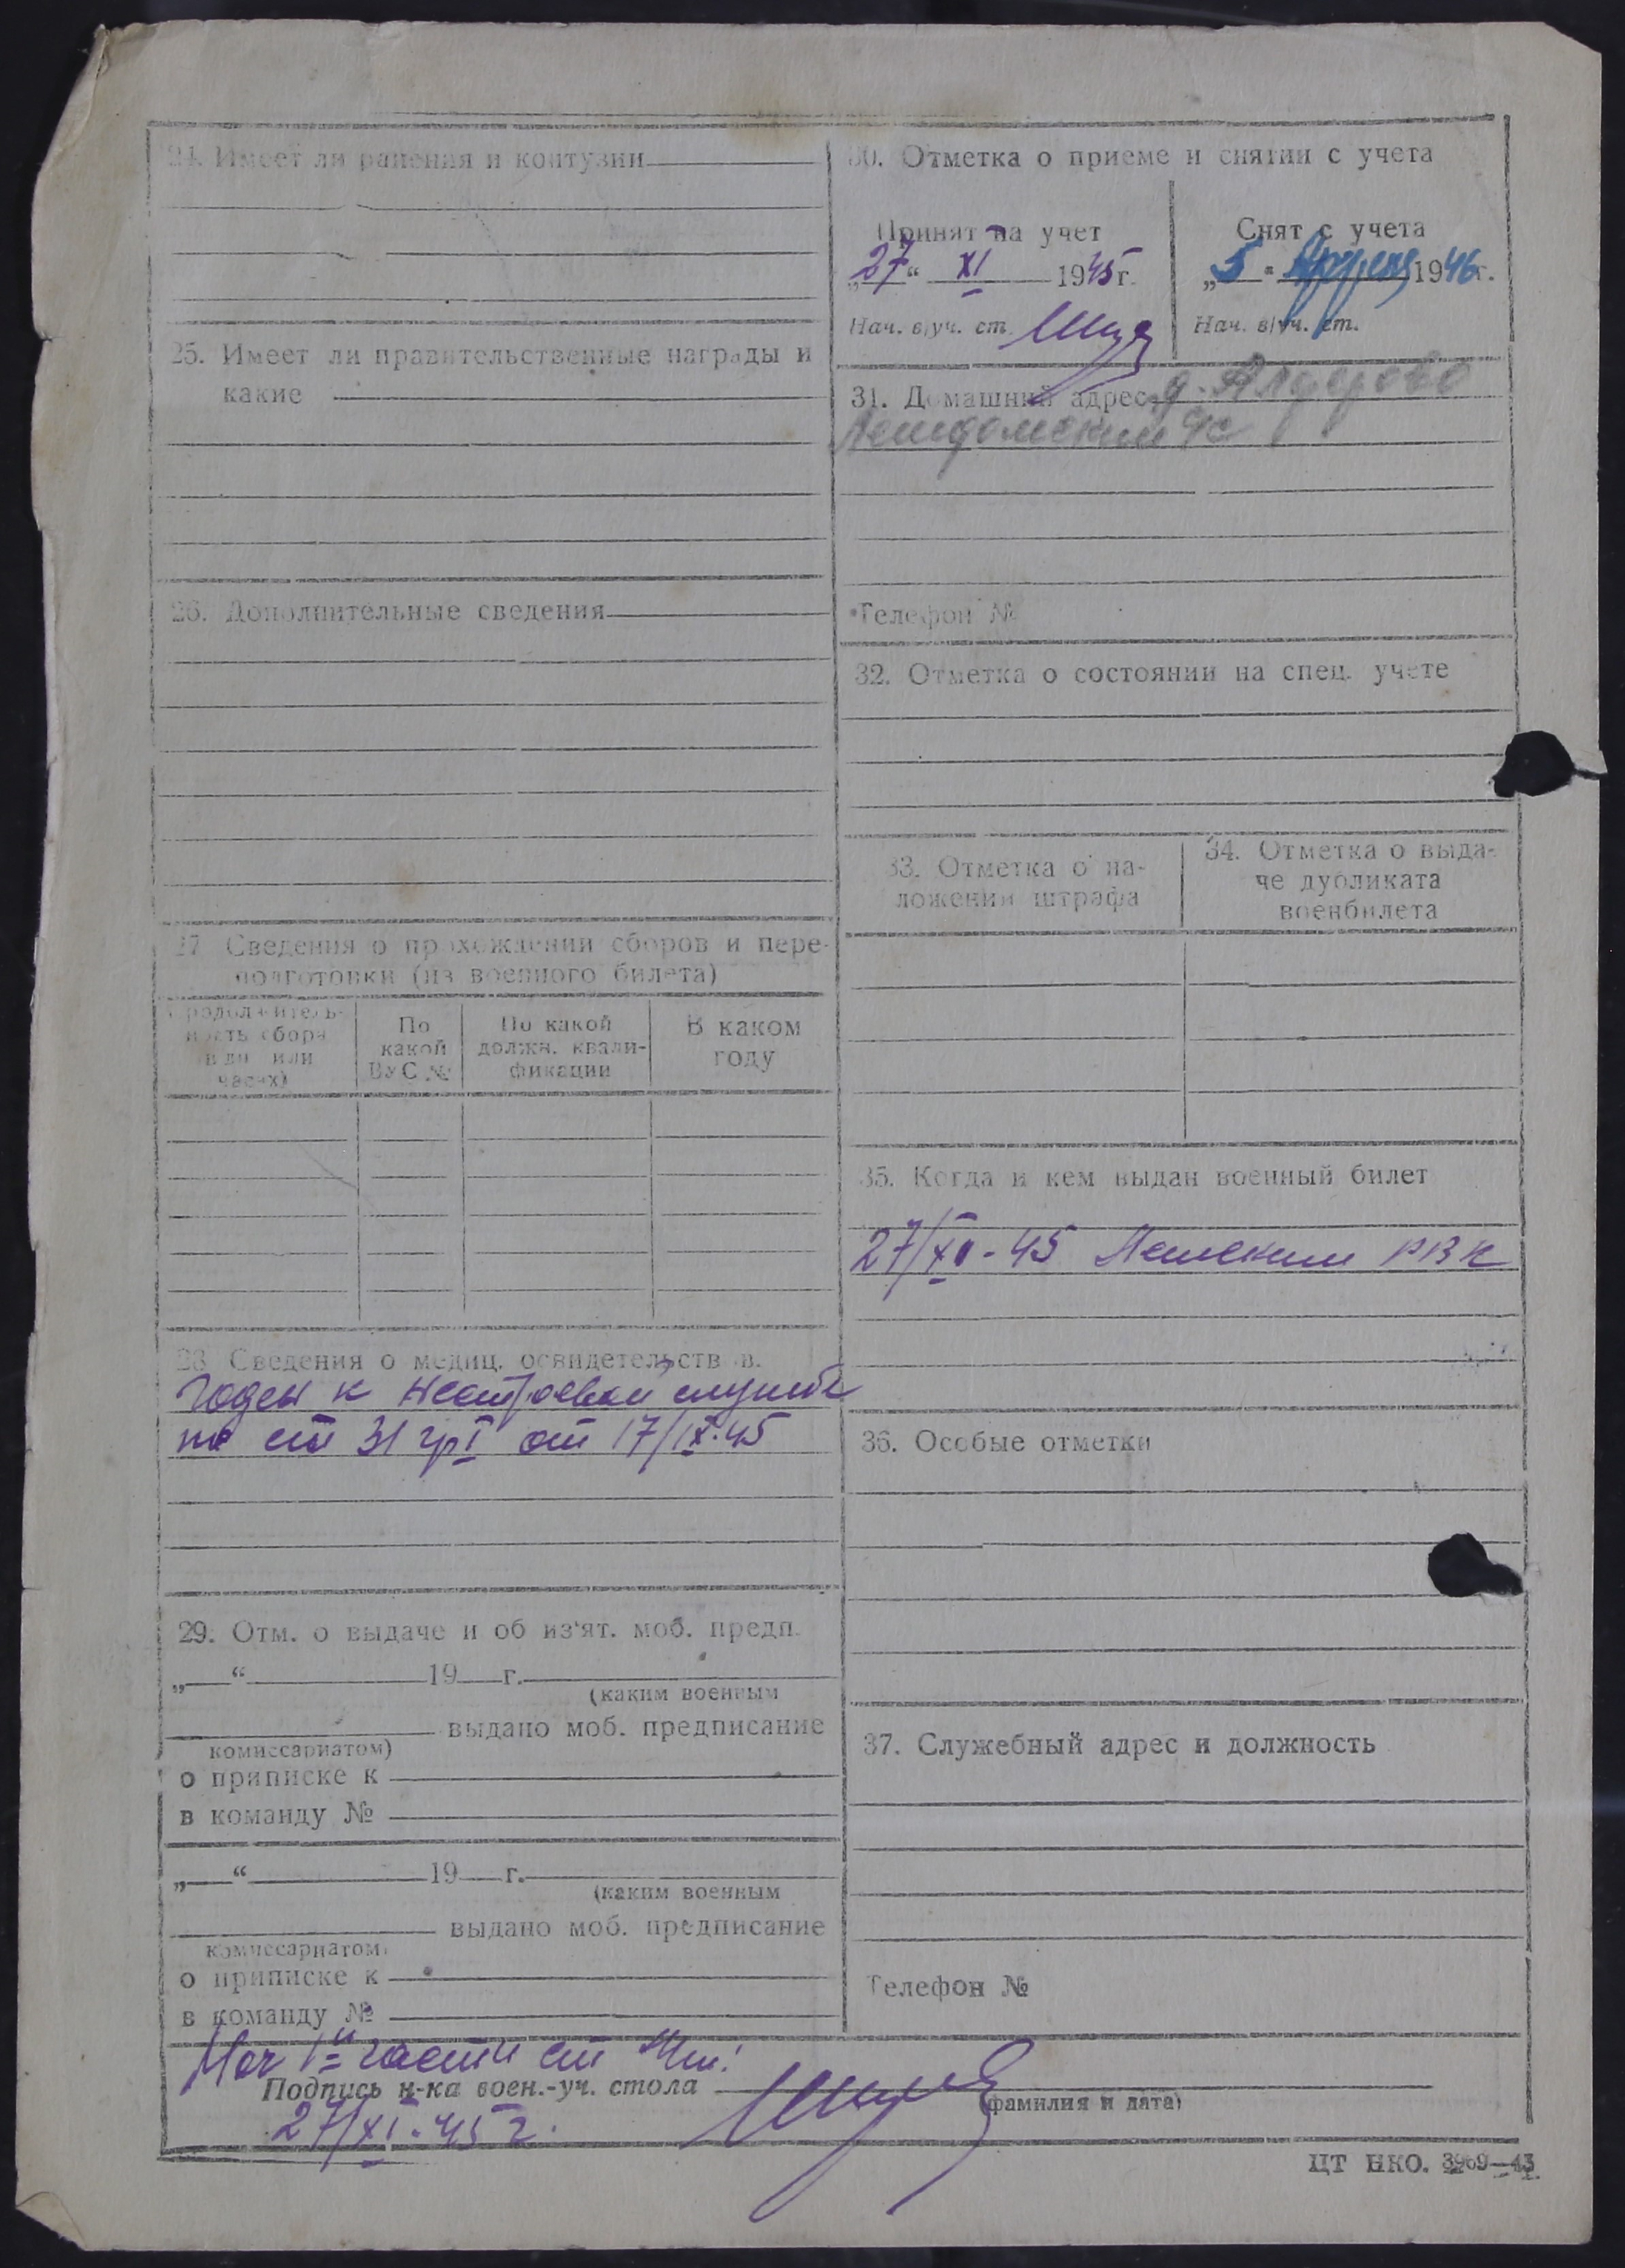 24. Имеет ли ранения и контузии
25. Имеет ли правительственные награды и
какие
26. Дополнительные сведения
27. Сведения о прохождении сборов и пере-
подготовки (из военного билета)
Продолжитель-
ность сбора
(в дн. или
часах)
По
какой
ВУС №
По какой
должн. квали-
фикации
В каком
году
28. Сведения о медиц. освидетельствов.
Годен к нестроевой службе
по ст 31 гр I от 17/IX-45
29. Отм. о выдаче и об из'ят. моб. предп.
„ “ 19 г.
(каким военным
выдано моб. предписание
комиссариатом)
о приписке к
в команду №
„ “ 19 г.
(каким военным
выдано моб. предписание
комиссариатом)
о приписке к
в команду №
30. Отметка о приеме и снятии с учета
Принят на учет
„27“ XI 1945 г.
Нач. в/уч. ст.
Снят с учета
„5“ Апреля 1946 г.
Нач. в/уч. ст.
31. Домашний адрес д.
Телефон №
32. Отметка о состоянии на спец. учете
33. Отметка о на-
ложении штрафа
34. Отметка о выда-
че дубликата
военбилета
35. Когда и кем выдан военный билет
27/XI-45 РВК
36. Особые отметки
37. Служебный адрес и должность
Телефон №
Нач 1й части ст
Подпись н-ка воен.-уч. стола
(фамилия и дата)
27/XI-45 г.
ЦТ НКО. 3969—43